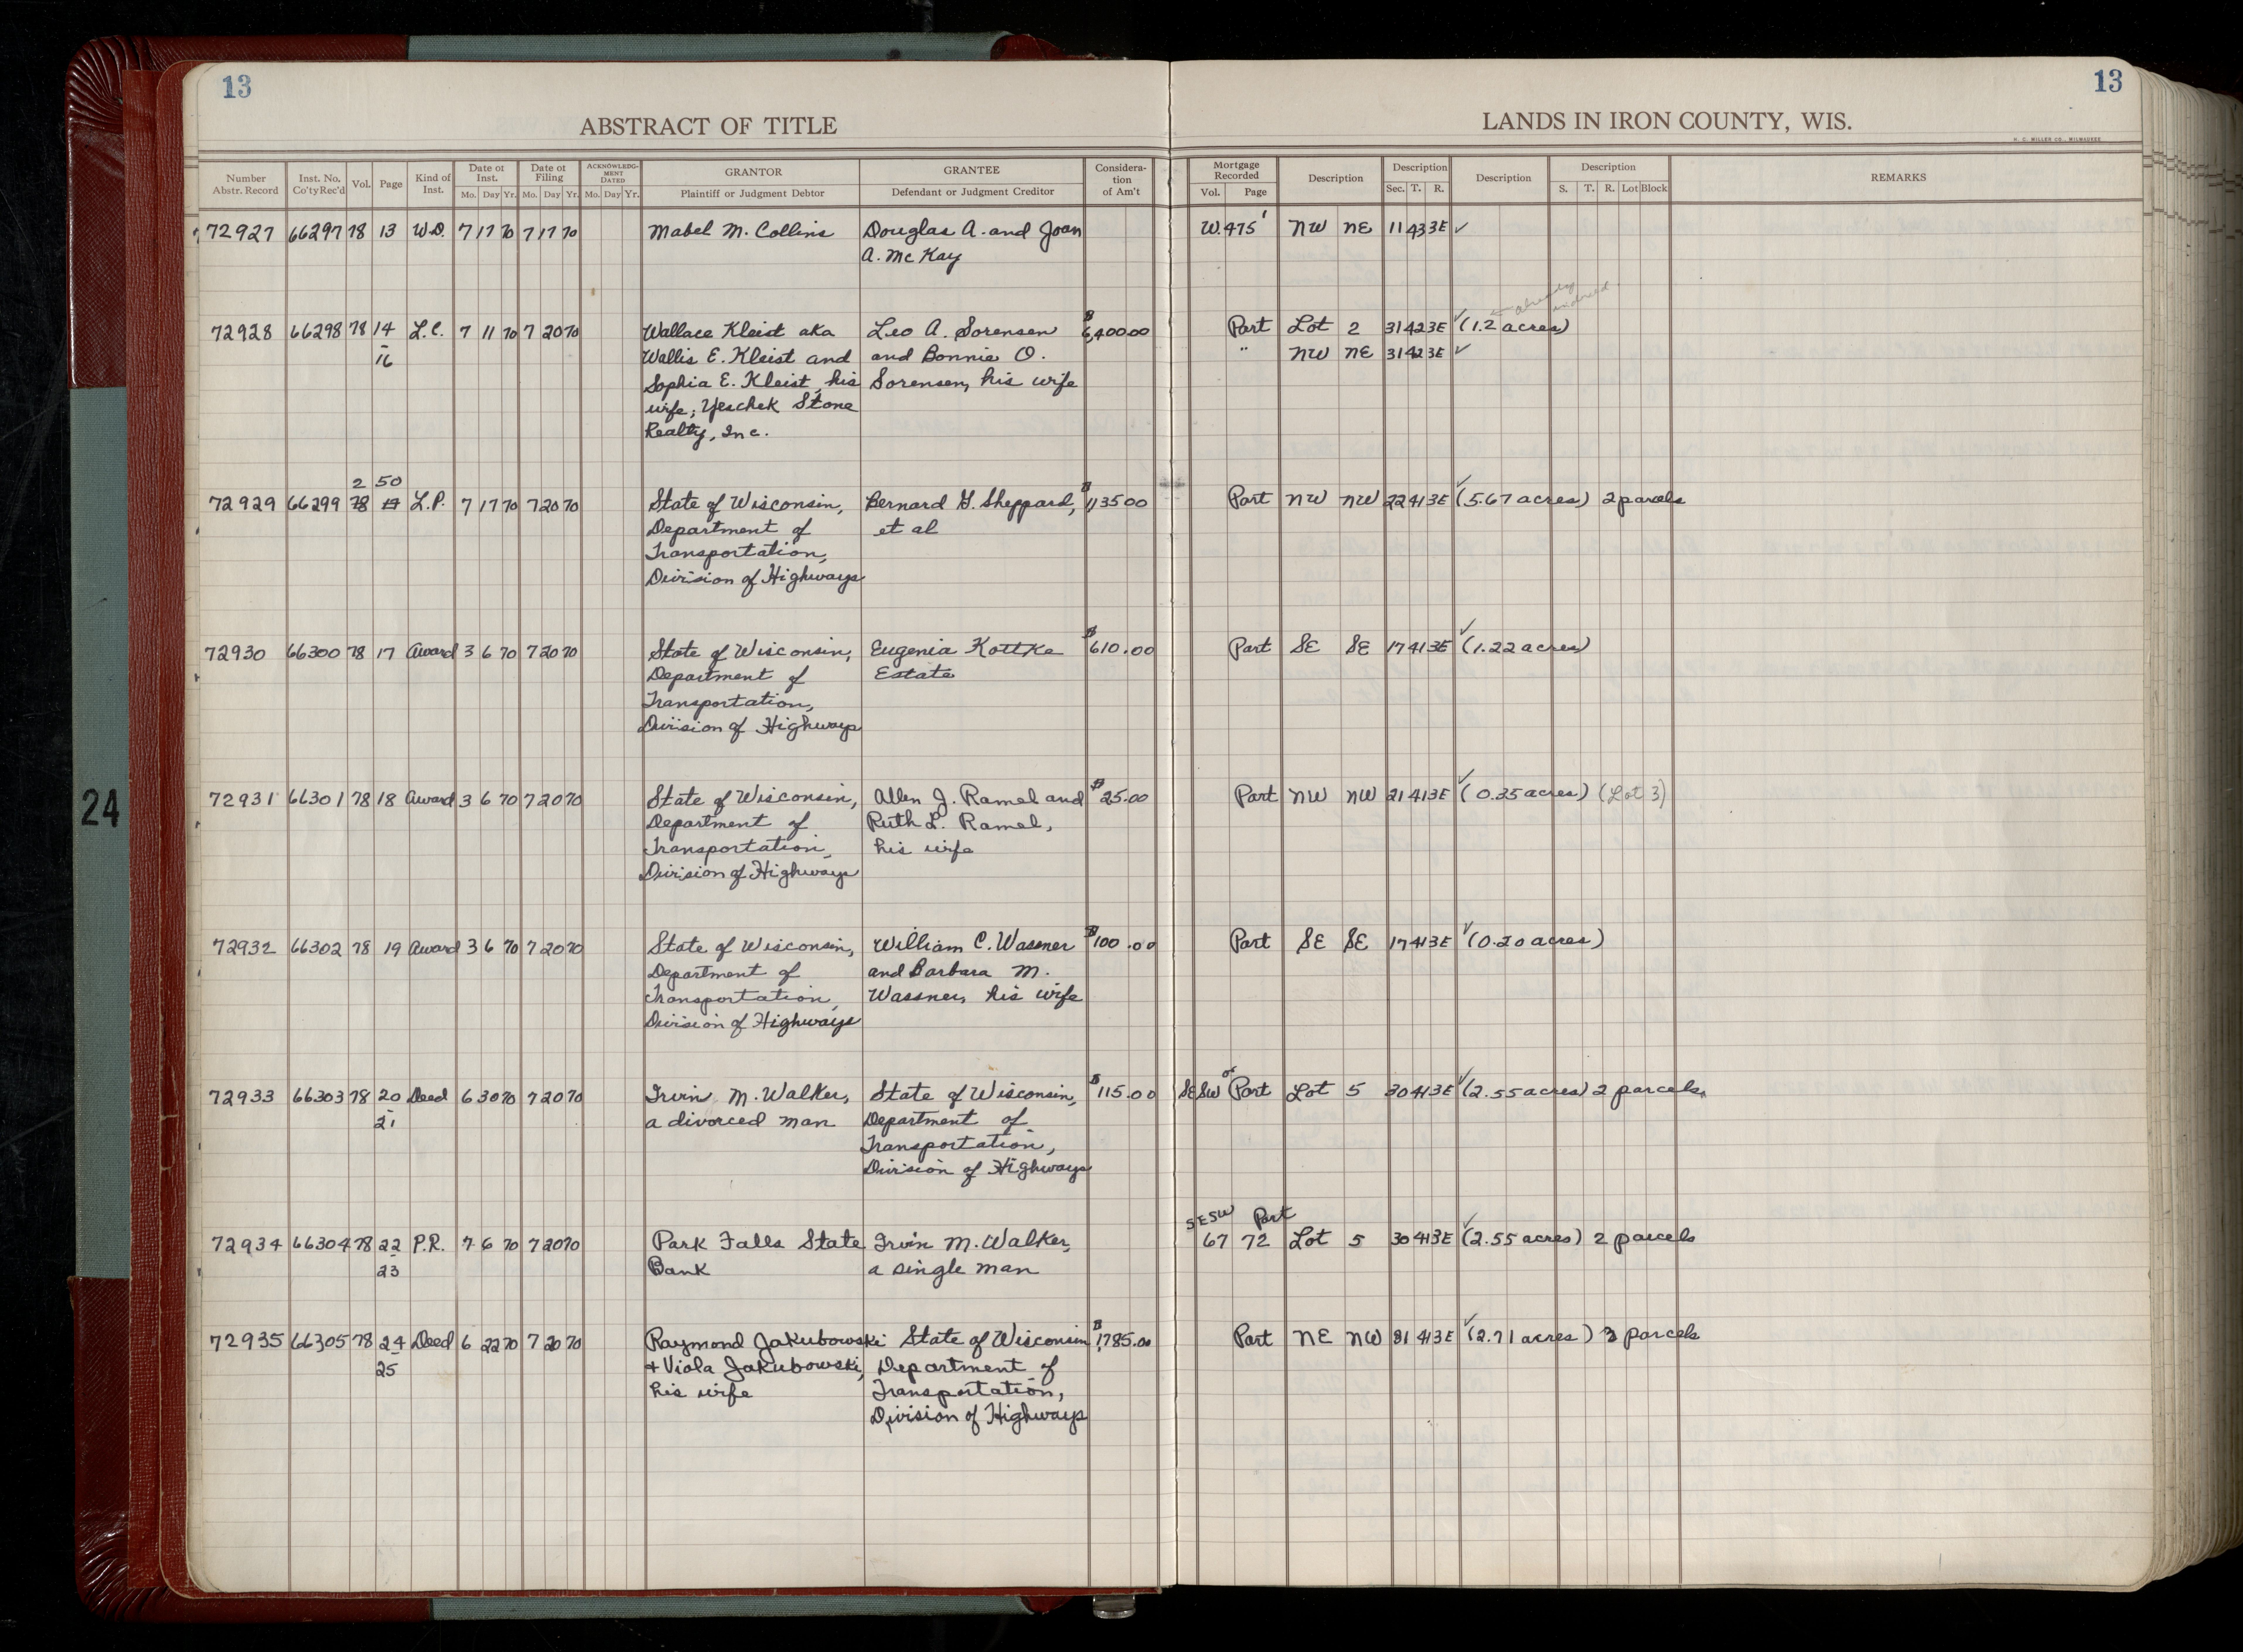 13
13
ABSTRACT OF TITLE
LANDS IN IRON COUNTY, WIS.
H. C. MILLER CO., MILWAUKEE
Number Abstr. Record Inst. No. Co'ty Rec'd Vol. Page Kind of Inst. Date of Inst. Mo. Day Yr. Date of Filing Mo. Day Yr. ACKNOWLEDGMENT DATED Mo. Day Yr. GRANTOR Plaintiff or Judgment Debtor GRANTEE Defendant or Judgment Creditor Consideration of Am't Mortgage Recorded Vol. Page Description Description Sec. T. R. Description Description S. T. R. Lot Block REMARKS
72927 66297 78 13 W.D. 7 17 70 7 17 70 Mabel M. Collins Douglas A. and Joan W. 475' NW NE 11 43 3E ✓
A. McKay
already
72928 66298 78 14 L.C. 7 11 70 7 20 70 Wallace Kleist aka Leo A. Sorensen $6,400.00 Part Lot 2 31 42 3E ✓ (1.2 acres)
- 16 Wallis E. Kleist and and Bonnie O. " NW NE 31 42 3E ✓
Sophia E. Kleist, his Sorensen, his wife
wife; Yeschek Stone
Realty, Inc.
2 50
72929 66299 78 17 L.P. 7 17 70 7 20 70 State of Wisconsin, Bernard G. Sheppard, $1,135.00 Part NW NW 22 41 3E ✓ (5.67 acres) 2 parcels
Department of et al
Transportation,
Division of Highways
72930 66300 78 17 Award 3 6 70 7 20 70 State of Wisconsin, Eugenia Kottke $610.00 Part SE SE 17 41 3E ✓ (1.22 acres)
Department of Estate
Transportation,
Division of Highways
72931 66301 78 18 Award 3 6 70 7 20 70 State of Wisconsin, Allen J. Ramel and $25.00 Part NW NW 21 41 3E ✓ (0.35 acres) (Lot 3)
Department of Ruth L. Ramel,
Transportation, his wife
Division of Highways
72932 66302 78 19 Award 3 6 70 7 20 70 State of Wisconsin, William C. Wassner $100.00 Part SE SE 17 41 3E ✓ (0.20 acres)
Department of and Barbara M.
Transportation, Wassner, his wife
Division of Highways
72933 66303 78 20 Deed 6 30 70 7 20 70 Irvin M. Walker, State of Wisconsin, $115.00 SE SW or Part Lot 5 30 41 3E ✓ (2.55 acres) 2 parcels
- 21 a divorced man Department of
Transportation,
Division of Highways
SE SW Part
72934 66304 78 22 P.R. 7 6 70 7 20 70 Park Falls State Irvin M. Walker, 67 72 Lot 5 30 41 3E ✓ (2.55 acres) 2 parcels
- 23 Bank a single man
72935 66305 78 24 Deed 6 22 70 7 20 70 Raymond Jakubowski State of Wisconsin $1,785.00 Part NE NW 31 41 3E ✓ (2.71 acres) 3 parcels
- 25 + Viola Jakubowski, Department of
his wife Transportation,
Division of Highways
24